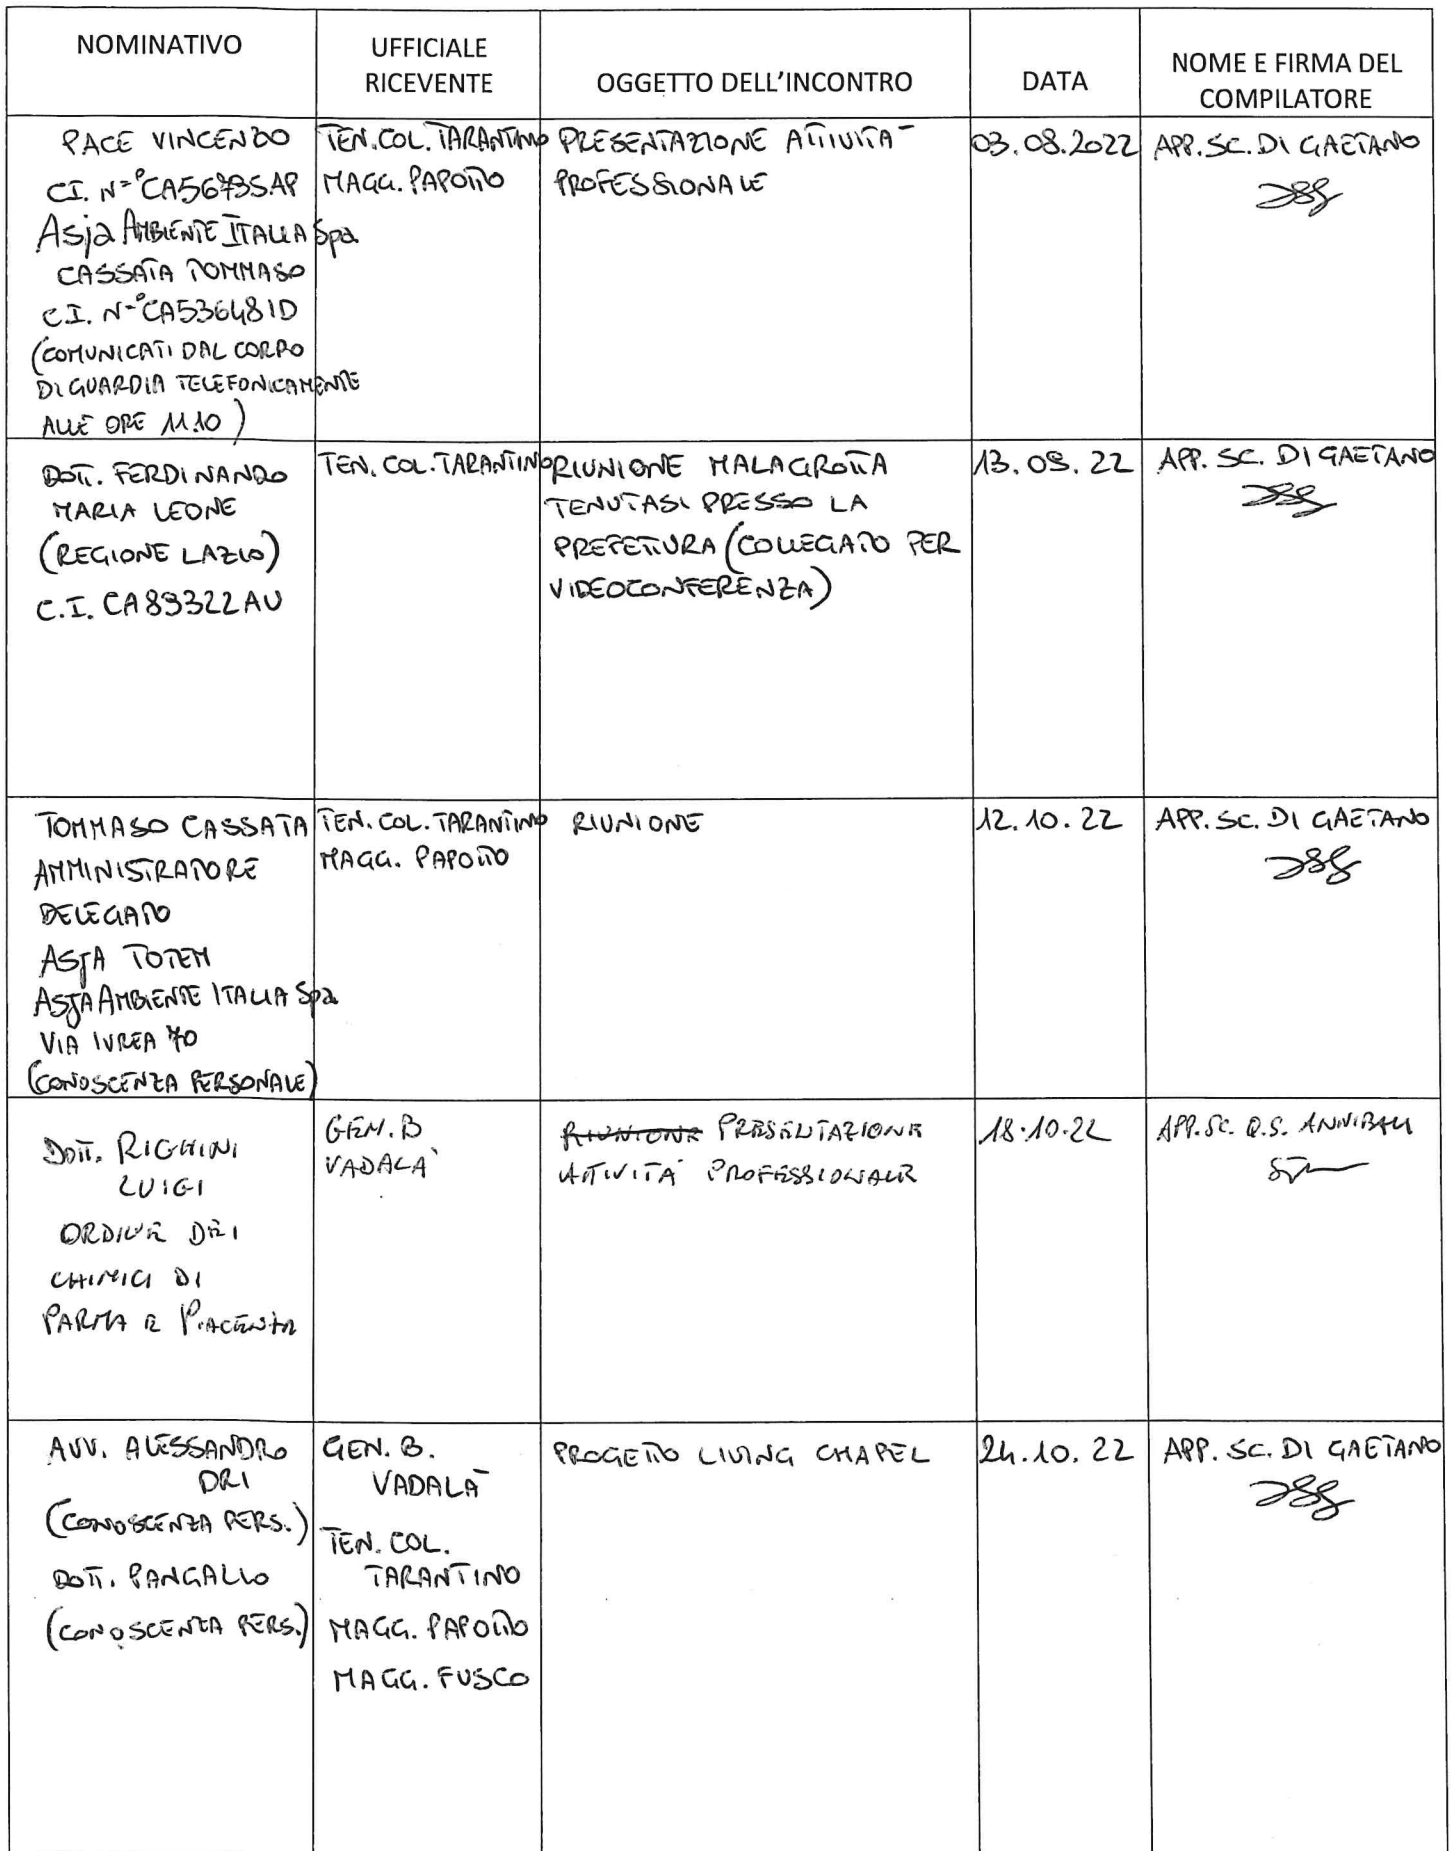 NOMINATIVO
UFFICIALE
RICEVENTE
OGGETTO DELL'INCONTRO
DATA
NOME E FIRMA DEL
COMPILATORE
PACE VINCENZO
C.I. N=°
Asja AMBIENTE ITALIA Spa
CASSATA TOMMASO
C.I. N=°CA53648ID
(COMUNICATI DAL CORPO
DI GUARDIA TELEFONICAMENTE
ALLE ORE 11.10)
TEN. COL. TARANTINO
MAGG. PAPOTTO
PRESENTAZIONE ATTIVITA'
PROFESSIONALE
03.08.2022
APP. SC. DI GAETANO
DOTT. FERDINANDO
MARIA LEONE
(REGIONE LAZIO)
C.I. CA89322AU
TEN. COL. TARANTINO
RIUNIONE MALAGROTTA
TENUTASI PRESSO LA
PREFETTURA (COLLEGATO PER
VIDEOCONFERENZA)
13.09.22
APP. SC. DI GAETANO
TOMMASO CASSATA
AMMINISTRATORE
DELEGATO
ASJA TOTEM
ASJA AMBIENTE ITALIA Spa
VIA IVREA 70
(CONOSCENZA PERSONALE)
TEN. COL. TARANTINO
MAGG. PAPOTTO
RIUNIONE
12.10.22
APP. SC. DI GAETANO
DOTT. RIGHINI
LUIGI
ORDINE DEI
CHIMICI DI
PARMA E PIACENZA
GEN. B
VADALA'
RIUNIONE PRESENTAZIONE
ATTIVITA' PROFESSIONALE
18.10.22
APP. SC. Q.S. ANNIBALI
AVV. ALESSANDRO
DRI
(CONOSCENZA PERS.)
DOTT. PANGALLO
(CONOSCENZA PERS.)
GEN. B.
VADALA'
TEN. COL.
TARANTINO
MAGG. PAPOTTO
MAGG. FUSCO
PROGETTO LIVING CHAPEL
24.10.22
APP. SC. DI GAETANO